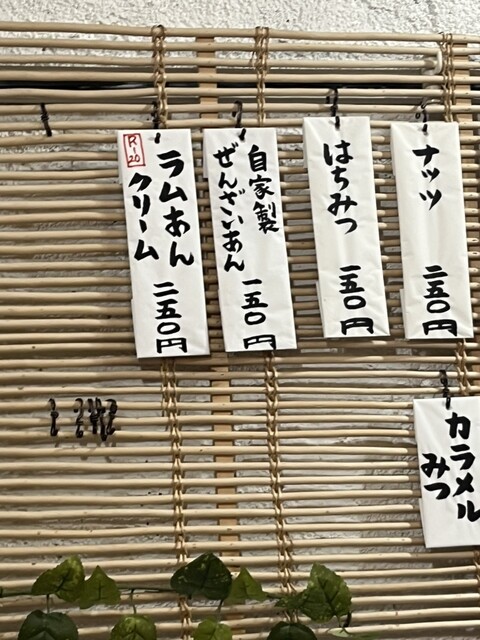 ナッツ
二五〇円
はちみつ
一五〇円
自家製
ぜんざいあん
一五〇円
R-20
ラムあん
クリーム
二五〇円
カラメル
みつ